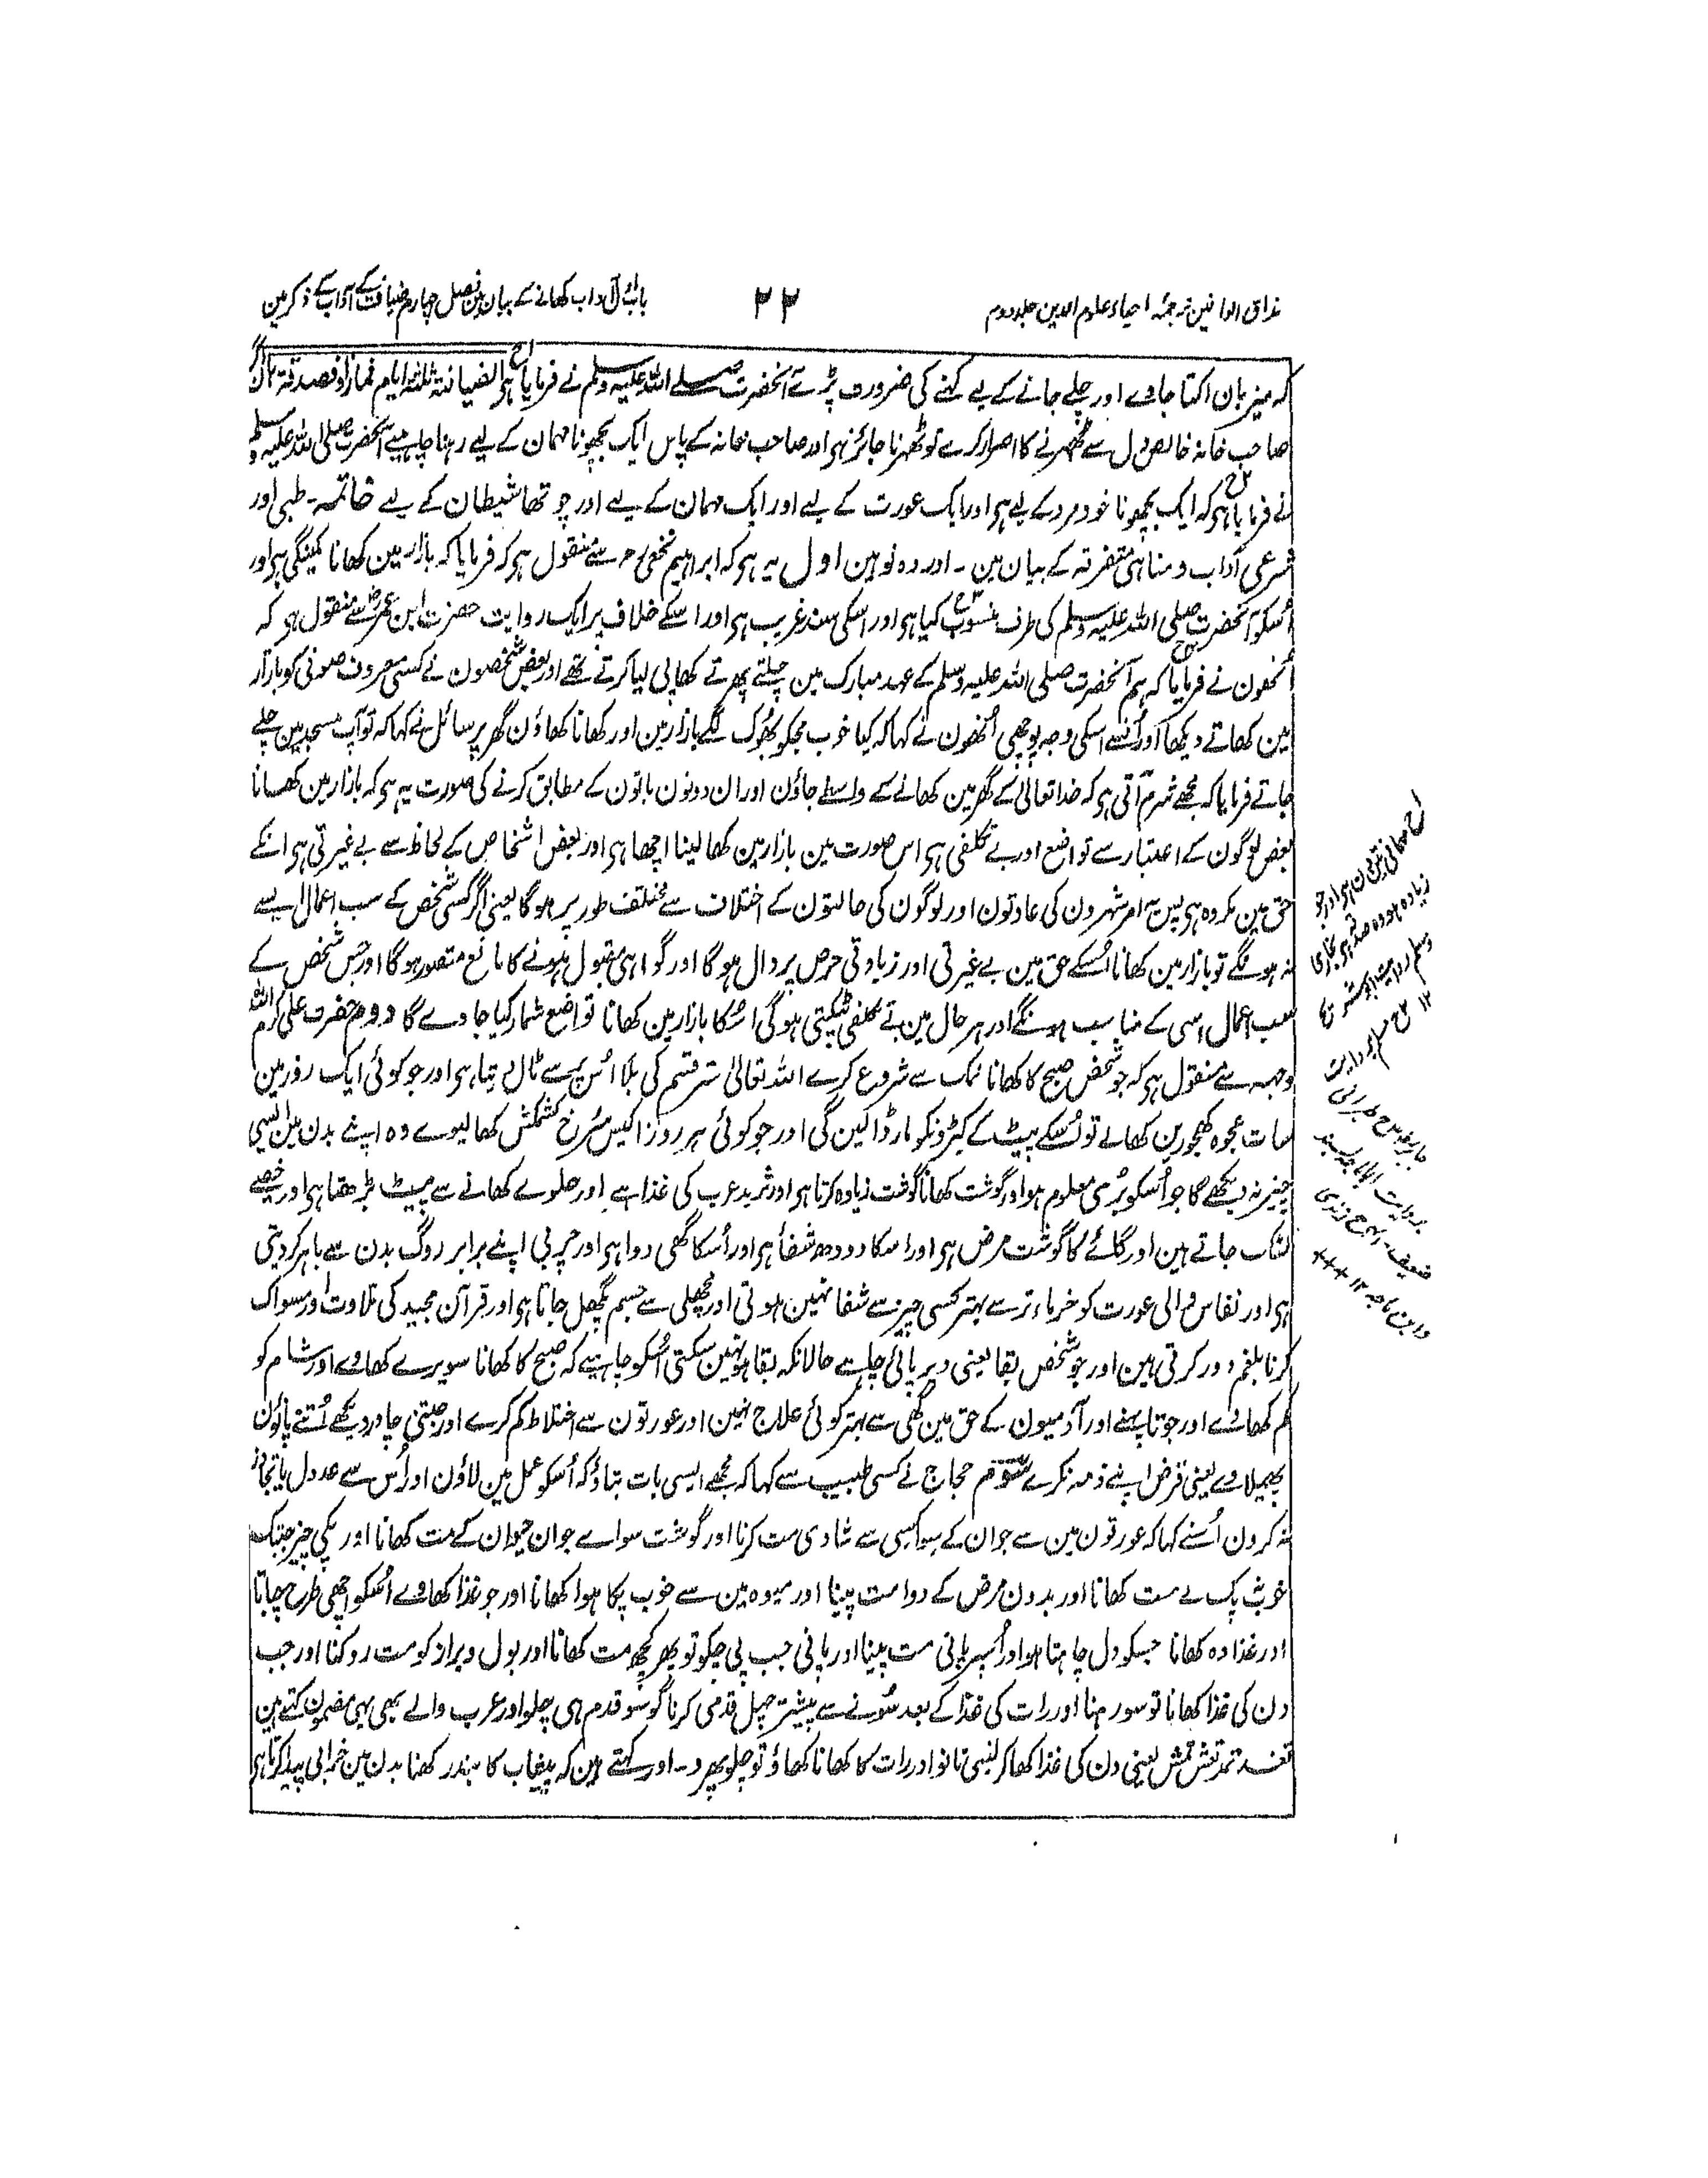 مذاق العارفین ترجمہ احیاء علوم الدین جلد دوم
۲۲
باب اول آداب کھانے کے بیان مین فصل چہارم ضیافت کے آداب کے ذکر مین
کہ میزبان اکتا جاوے اور چلے جانے کے لیے کہنے کی ضرورت پڑے آنحضرت صلے اللہ علیہ وسلم نے فرمایا ہی الضیافۃ ثلثۃ ایام فمازاد فصدقۃ ہان اگر
صاحب خانہ خالص دل سے ٹھہرنے کا اصرار کرے تو ٹھہرنا جائز ہی اور صاحب خانہ کے پاس ایک بچھونا مہمان کے لیے رہنا چاہیے آنحضرت صلی اللہ علیہ وسلم
نے فرمایا ہی کہ ایک بچھونا خود مرد کے لیے ہی اور ایک عورت کے لیے اور ایک مہمان کے لیے اور چوتھا شیطان کے لیے خاتمہ۔ طبی اور
شرعی آداب و مناہی متفرقہ کے بیان مین۔ اور وہ نو ہین اول یہ ہی کہ ابراہیم نخعی رح سے منقول ہی کہ فرمایا کہ بازار مین کھانا کمینگی ہی اور
اُسکو آنحضرت صلی اللہ علیہ وسلم کی طرف منسوب کیا ہی اور اسکی سند غریب ہی اور اسکے خلاف پر ایک روایت حضرت ابن عمر رض سے منقول ہی کہ
اُنھون نے فرمایا کہ ہم آنحضرت صلی اللہ علیہ وسلم کے عہد مبارک مین چلتے پھرتے کھا پی لیا کرتے تھے اور بعض شخصون نے کسی معروف صوفی کو بازار
مین کھاتے دیکھا اور اُنسے اسکی وجہ پوچھی اُنھون نے کہا کہ کیا خوب مجکو بھوک لگے بازار مین اور کھانا کھاؤن گھر پر سائل نے کہا کہ تو آپ مسجد مین چلے
جاتے فرمایا کہ مجھے شرم آتی ہی کہ خدا تعالی کے گھر مین کھانے کے واسطے جاؤن اور ان دونون باتون کے مطابق کرنے کی صورت یہ ہی کہ بازار مین کھانا
بعض لوگون کے اعتبار سے تواضع اور بے تکلفی ہی اس صورت مین بازار مین کھا لینا اچھا ہی اور بعض اشخاص کے لحاظ سے بے غیرتی ہی انکے
حق مین مکروہ ہی پس یہ امر شہرون کی عادتون اور لوگون کی حالتون کے اختلاف سے مختلف طور پر ہوگا یعنی اگر کسی شخص کے سب اعمال ایسے
نہ ہونگے تو بازار مین کھانا اُسکے حق مین بے غیرتی اور زیادتی حرص پر دال ہوگا اور گواہی مقبول ہونے کا مانع متصور ہوگا اور جس شخص کے
سب اعمال اسی کے مناسب ہونگے اور ہر حال مین بے تکلفی ٹپکتی ہوگی اُسکا بازار مین کھانا تواضع شمار کیا جاوے گا دوم حضرت علی کرم اللہ
وجہہ سے منقول ہی کہ جو شخص صبح کا کھانا نمک سے شروع کرے اللہ تعالی ستر قسم کی بلا اُس پر سے ٹال دیتا ہی اور جو کوئی ایک روز مین
سات عجوہ کھجورین کھالے تو اُسکے پیٹ کے کیڑونکو مار ڈالین گی اور جو کوئی ہر روز اکیس سُرخ کشمش کھا لیوے وہ اپنے بدن مین ایسی
چیز نہ دیکھے گا جو اُسکو بُری معلوم ہو اور گوشت کھانا گوشت زیادہ کرتا ہی اور ثرید عرب کی غذا ہے اور حلوے کھانے سے پیٹ بڑھتا ہی اور خصیے
لٹک جاتے ہین اور گائے کا گوشت مرض ہی اور اسکا دودھ شفا ہی اور اُسکا گھی دوا ہی اور چربی اپنے برابر روگ بدن سے باہر کر دیتی
ہی اور نفاس والی عورت کو خرماء تر سے بہتر کسی چیز سے شفا نہین ہوتی اور مچھلی سے جسم پگھل جاتا ہی اور قرآن مجید کی تلاوت اور مسواک
کرنا بلغم دور کرتی ہین اور جو شخص بقا یعنی دیر پائی چاہے حالانکہ بقا ہو نہین سکتی اُسکو چاہیے کہ صبح کا کھانا سویرے کھاوے اور شام کو
کم کھاوے اور جوتا پہنے اور آدمیون کے حق مین گھی سے بہتر کوئی علاج نہین اور عورتون سے اختلاط کم کرے اور جتنی چادر دیکھے اُتنے پاؤن
پھیلاوے یعنی قرض اپنے ذمہ نکرے سوم حجاج نے کسی طبیب سے کہا کہ مجھے ایسی بات بتاؤ کہ اُسکو عمل مین لاؤن اور اُس سے عدول یا تجاوز
نہ کرون اُسنے کہا کہ عورتون مین سے جوان کے سوا کسی سے شادی مت کرنا اور گوشت سواے جوان حیوان کے مت کھانا اور پکی چیز جبتک
خوب پک نہ لے مت کھانا اور بدون مرض کے دوا مت پینا اور میوہ مین سے خوب پکا ہوا کھانا اور جو غذا کھاوے اُسکو اچھی طرح چبانا
اور غذا وہ کھانا جسکو دل چاہتا ہو اور اُسپر پانی مت پینا اور پانی جب پی چکو تو پھر کچھ مت کھانا اور بول و براز کو مت روکنا اور جب
دن کی غذا کھانا تو سو رہنا اور رات کی غذا کے بعد سونے سے پیشتر چہل قدمی کرنا گو سو قدم ہی چلو اور عرب والے بھی یہی مضمون کہتے ہین
تغد تمد تعش تمش یعنی دن کی غذا کھا کر لنبی تانو اور رات کا کھانا کھاؤ تو چلو پھرو۔ اور کہتے ہین کہ پیشاب کا بند رکھنا بدن مین خرابی پیدا کرتا ہی
اح مہمانی تین دن ہی اور جو
زیادہ ہو وہ صدقہ ہی بخاری
ومسلم روایت ابو شریح
۱۲ ح مسلم بروایت
جابر رض ح طبرانی
بروایت ابو امامہ بسند
ضعیف۔ ح ترمذی
وابن ماجہ ۱۲ +++